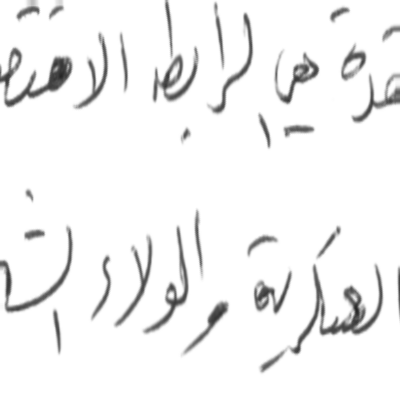 قدة هي الرابط الاقتص
العسكرية والولاء الش